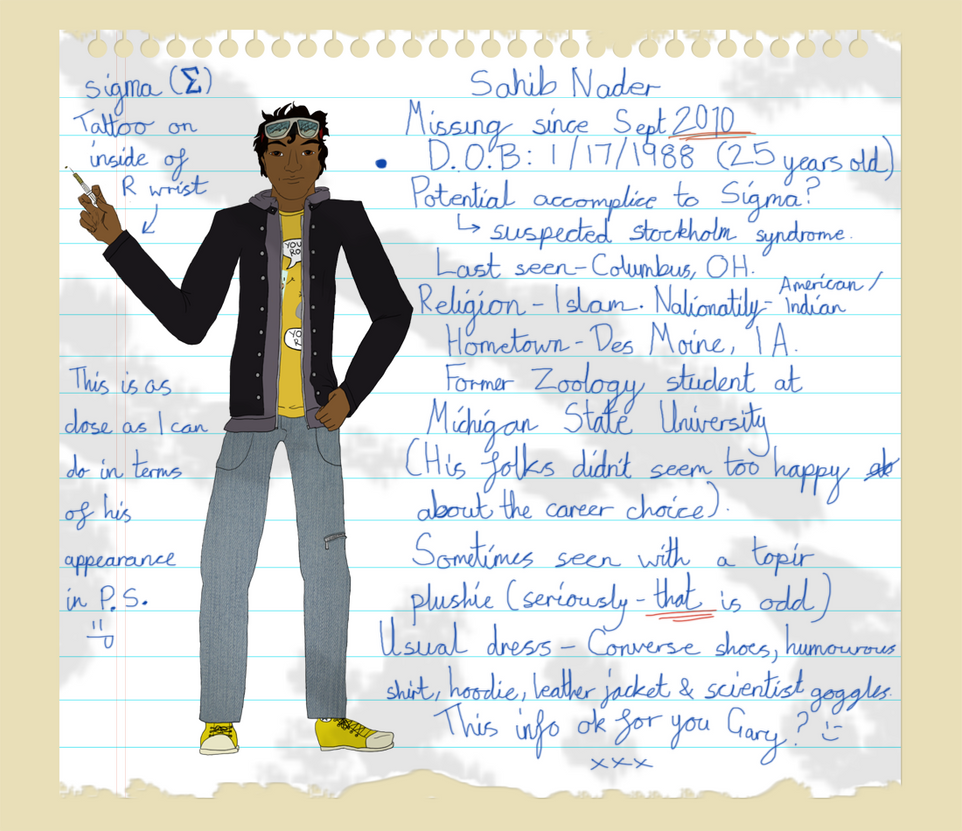 sigma (Σ)
Tattoo on
inside of
R wrist
This is as
close as I can
do in terms
of his
appearance
in P.S.
Sahib Nader
Missing since Sept 2010
• D.O.B: 1/17/1988 (25 years old)
Potential accomplice to Sigma?
↳ suspected stockholm syndrome.
Last seen - Columbus, OH.
Religion - Islam. Nationatily - American / Indian
Hometown - Des Moine, IA.
Former Zoology student at
Michigan State University
(His folks didn't seem too happy ab
about the career choice).
Sometimes seen with a tapir
plushie (seriously - that is odd)
Usual dress - Converse shoes, humourous
shirt, hoodie, leather jacket & scientist goggles.
This info ok for you Gary? :)
xxx
YOU
RO
YO